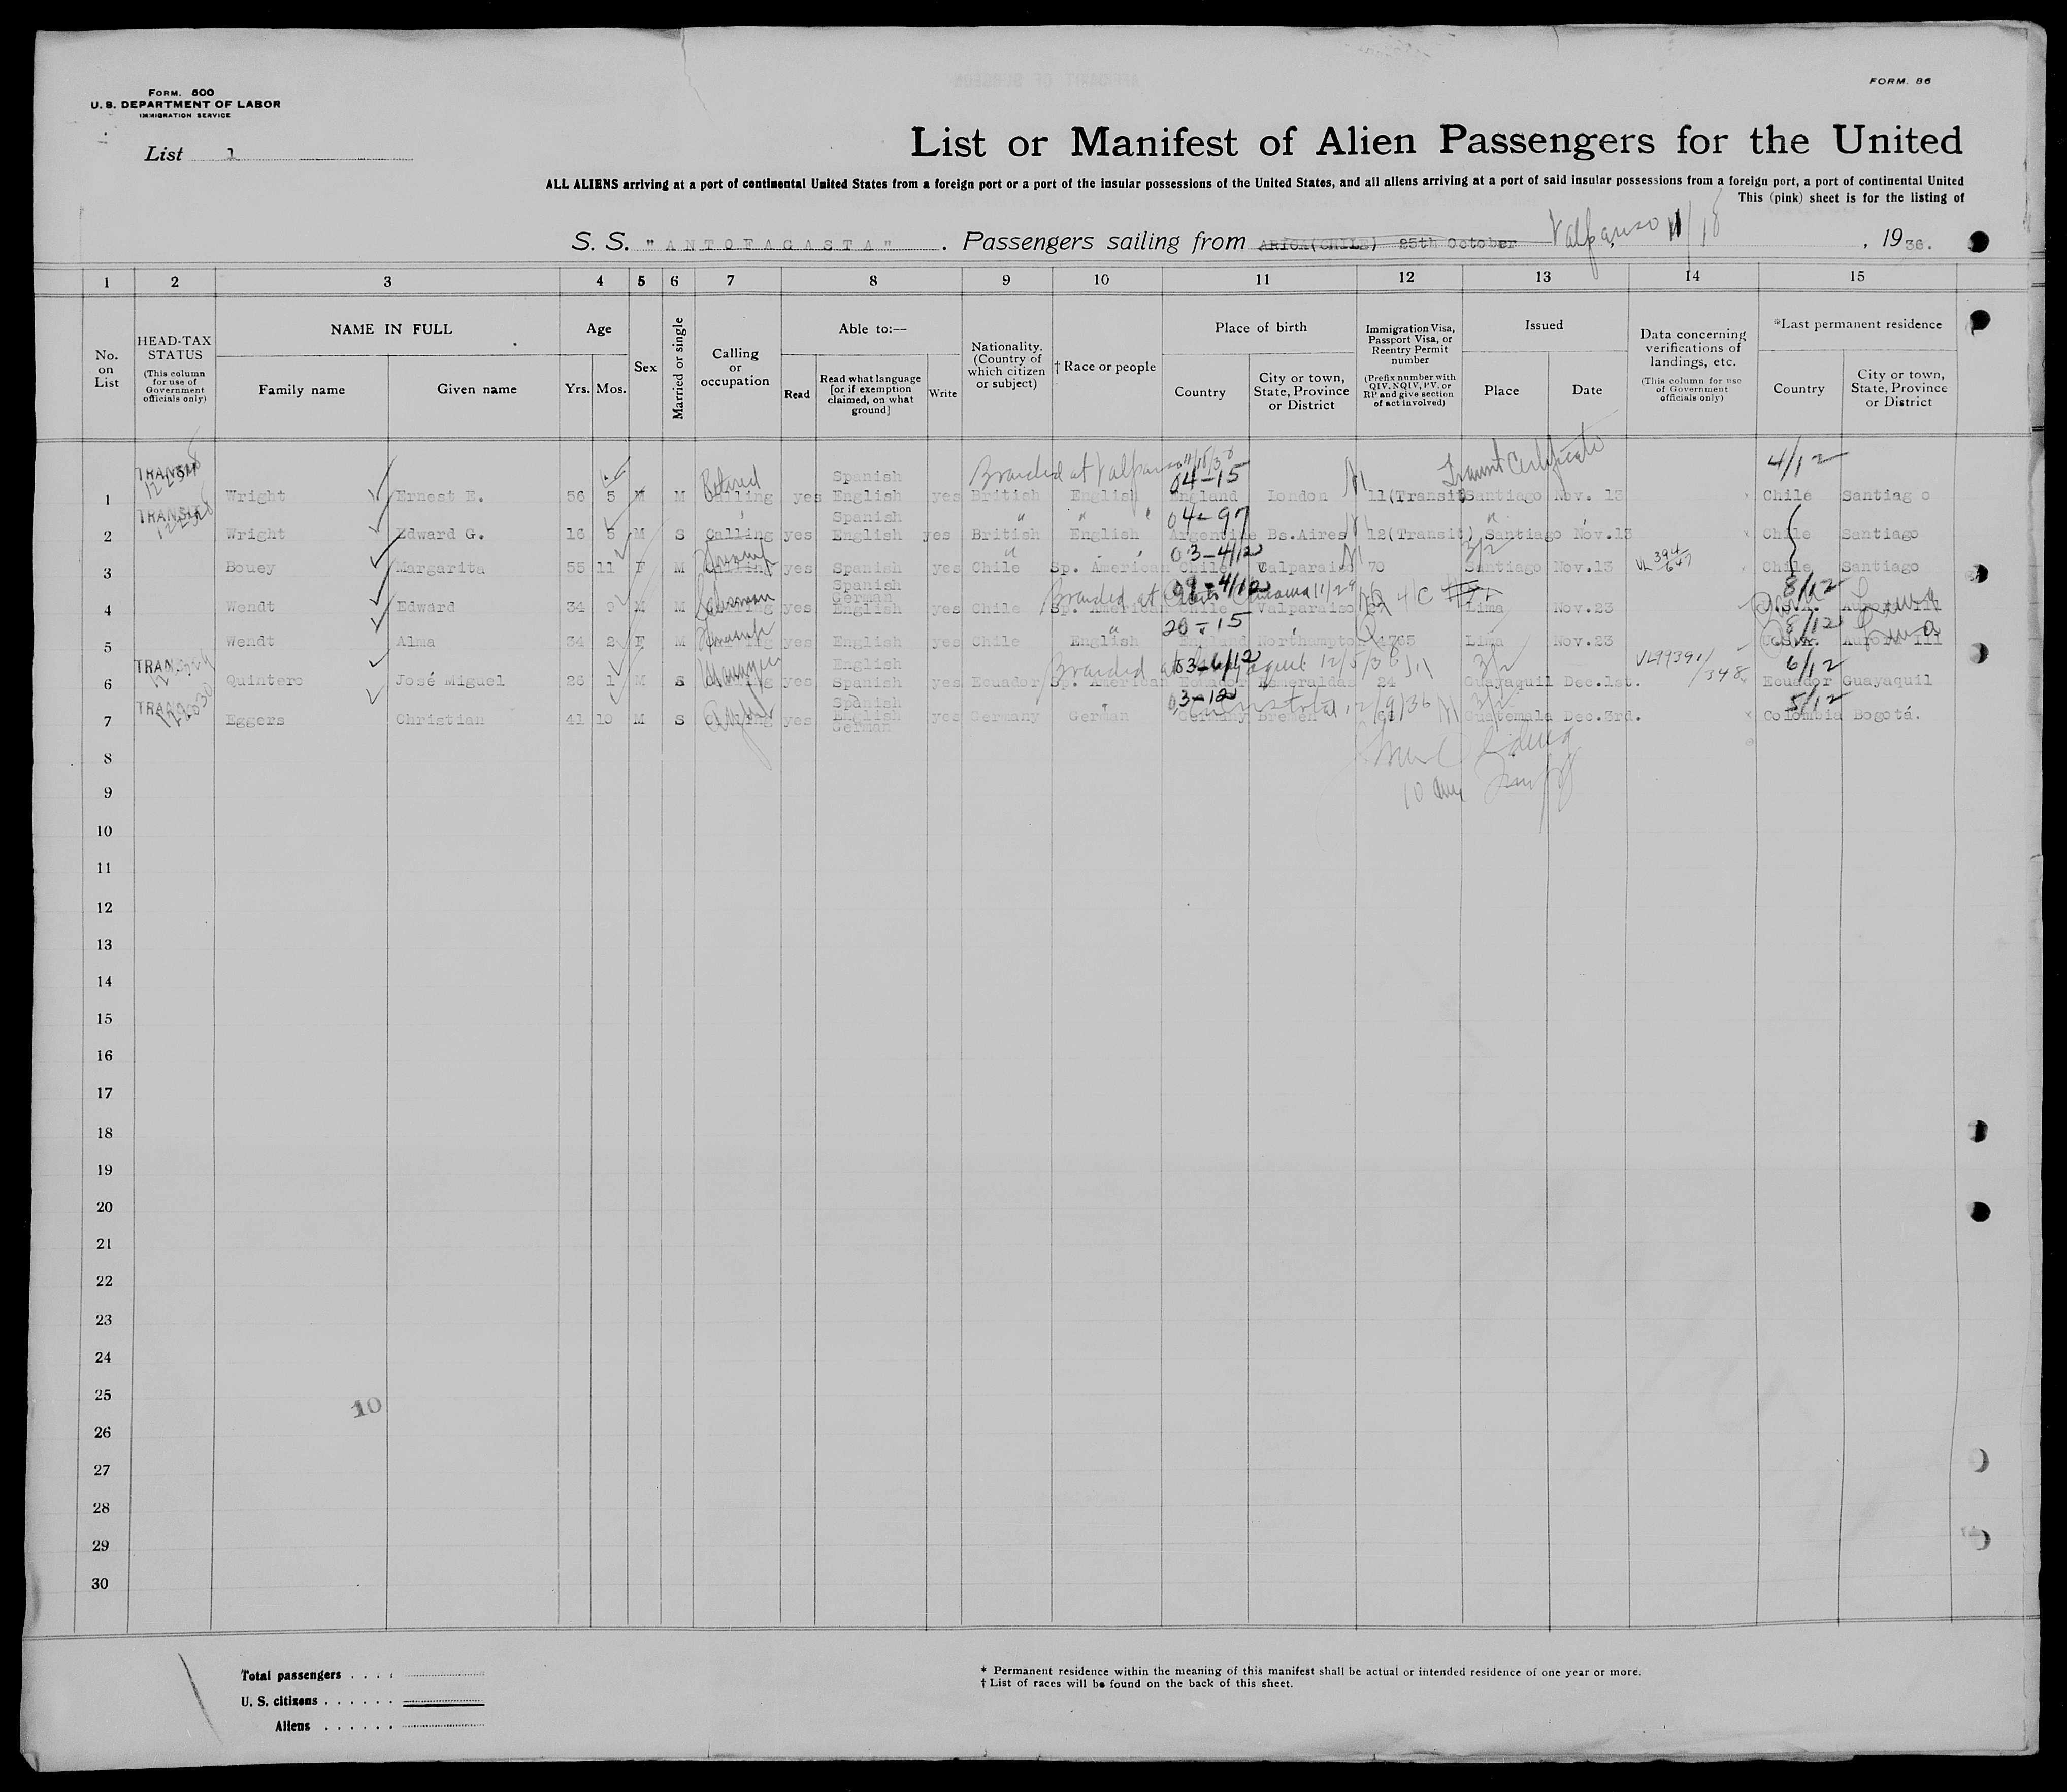 FORM. 500
U. S. DEPARTMENT OF LABOR
IMMIGRATION SERVICE
FORM. 86
List 1
List or Manifest of Alien Passengers for the United
ALL ALIENS arriving at a port of continental United States from a foreign port or a port of the insular possessions of the United States, and all aliens arriving at a port of said insular possessions from a foreign port, a port of continental United
This (pink) sheet is for the listing of
S. S. "ANTOFAGASTA". Passengers sailing from ARICA(CHILE) 25th October Valparaiso 11/18, 1936.
1 2 3 4 5 6 7 8 9 10 11 12 13 14 15
No. on List
HEAD-TAX STATUS
(This column for use of Government officials only)
NAME IN FULL
Family name
Given name
Age
Yrs. Mos.
Sex
Married or single
Calling or occupation
Able to:—
Read
Read what language [or if exemption claimed, on what ground]
Write
Nationality. (Country of which citizen or subject)
† Race or people
Place of birth
Country
City or town, State, Province or District
Immigration Visa, Passport Visa, or Reentry Permit number
(Prefix number with QIV, NQIV, PV, or RP and give section of act involved)
Issued
Place
Date
Data concerning verifications of landings, etc.
(This column for use of Government officials only)
*Last permanent residence
Country
City or town, State, Province or District
Branded at Valparaiso 11/18/36 04-15 Transit Certificate 4/12
TRANSIT Retired Spanish
1 Wright Ernest E. 56 5 M M Calling yes English yes British English England London 11(Transit) Santiago Nov. 13 Chile Santiago
TRANSIT Spanish " " " 04-97 "
2 Wright Edward G. 16 5 M S Calling yes English yes British English Argentine Bs.Aires 12(Transit) Santiago Nov.13 Chile Santiago
" 03-4/12 3/2
3 Bouey Margarita 55 11 F M Calling yes Spanish yes Chile Sp. American Chile Valparaiso 70 Santiago Nov.13 Chile Santiago
Salesman Spanish German Branded at 09-4/12 11/29 4/C 8/12 Lima
4 Wendt Edward 34 9 M M Calling yes English yes Chile Sp. American Chile Valparaiso Lima Nov.23 U.S.A. Aurora Ill
20-15 8/12 Lima
5 Wendt Alma 34 2 F M Calling yes English yes Chile English England Northampton 1765 Lima Nov.23 U.S.A. Aurora Ill
TRANSIT English Branded at 03-6/12 12/5/36 3/2 6/12
6 Quintero José Miguel 26 1 M S Calling yes Spanish yes Ecuador Sp. American Ecuador Esmeraldas 24 Guayaquil Dec.1st. Ecuador Guayaquil
TRANSIT Spanish 03-12 Cristobal 12/9/36 3/2 5/12
7 Eggers Christian 41 10 M S Calling yes English German yes Germany German Germany Bremen Guatemala Dec.3rd. Colombia Bogotá.
8
9
10
11
12
13
14
15
16
17
18
19
20
21
22
23
24
25
10
26
27
28
29
30
Total passengers . . . .
U. S. citizens . . . . . .
Aliens . . . . . .
* Permanent residence within the meaning of this manifest shall be actual or intended residence of one year or more.
† List of races will be found on the back of this sheet.